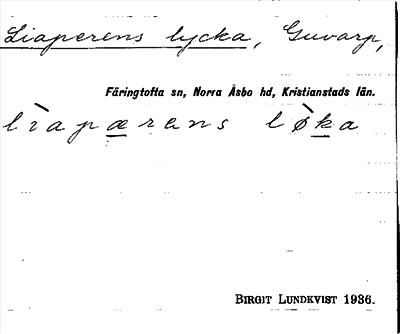 Liaperens lycka, Guvarp,
Färingtofta sn, Norra Åsbo hd, Kristianstads län.
lìapærens lø̀ka
BIRGIT LUNDKVIST 1936.